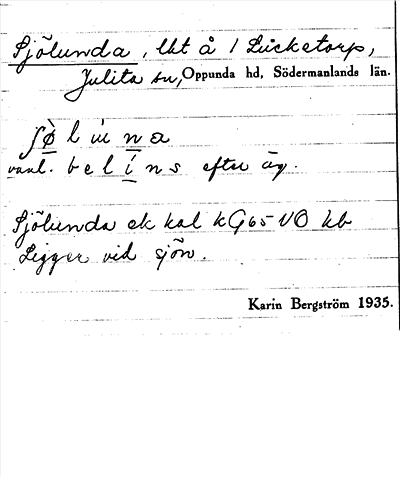 Sjölunda, lht å 1 Lucketorp,
Julita sn, Oppunda hd, Södermanlands län.
ʃø̀lúna
vanl. belíns efter äg.
Sjölunda ek kal kG65 VO hb
Ligger vid sjön.
Karin Bergström 1935.